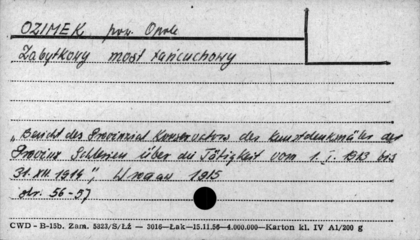 OZIMEK pow. Opole
Zabytkowy most łańcuchowy
„Bericht des Provinzial Konservators der Kunstdenkmäler der
Provinz Schlesien über die Tätigkeit vom 1. I. 1913 bis
31. XII 1914”, 1915
str. 56-57
CWD - B-15b. Zam. 5823/S/Łź — 3016—Łak—15.11.56—4.000.000—Karton kl. IV A1/200 g